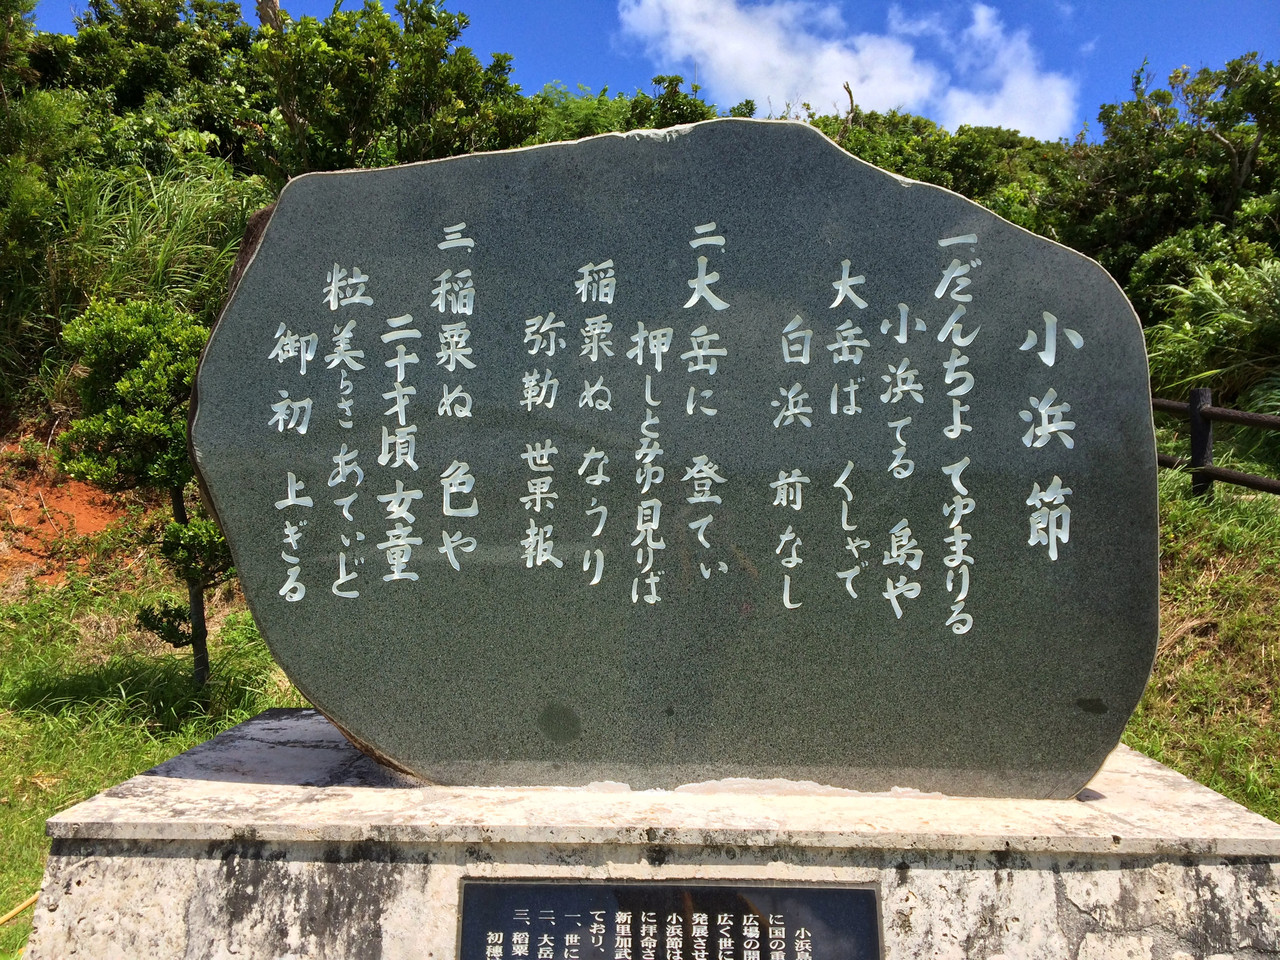 小浜節
一、だんちよ てゆまりる
小浜てる 島や
大岳ば くしゃで
白浜 前なし
二、大岳に 登てぃ
押しとみゆ見りば
稲粟ぬ なうり
弥勒 世果報
三、稲粟ぬ 色や
二十才頃女童
粒美らさ あてぃど
御初 上ぎる
小浜島
に国の重
広場の開
広く世に
発展させ
小浜節は
に拝命さ
新里加武
ており、
一、世に
二、大岳
三、稲粟
初穂